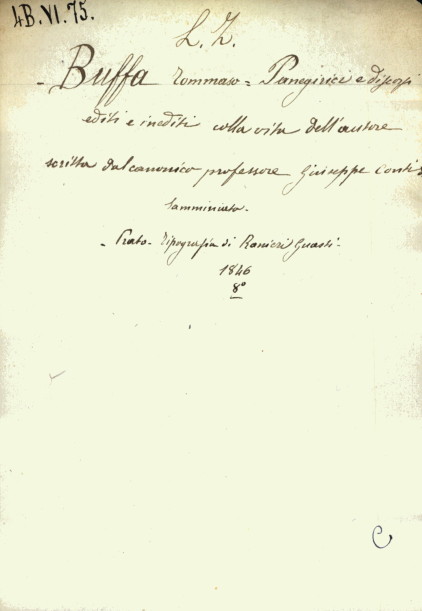 4B.VI.75.
L. Z.
- Buffa Tommaso = Panegirici e discorsi
editi e inediti colla vita dell'autore
scritta dal canonico professore Giuseppe Conti =
Samminiato -
- Prato - Tipografia di Ranieri Guasti -
1846
8º
C